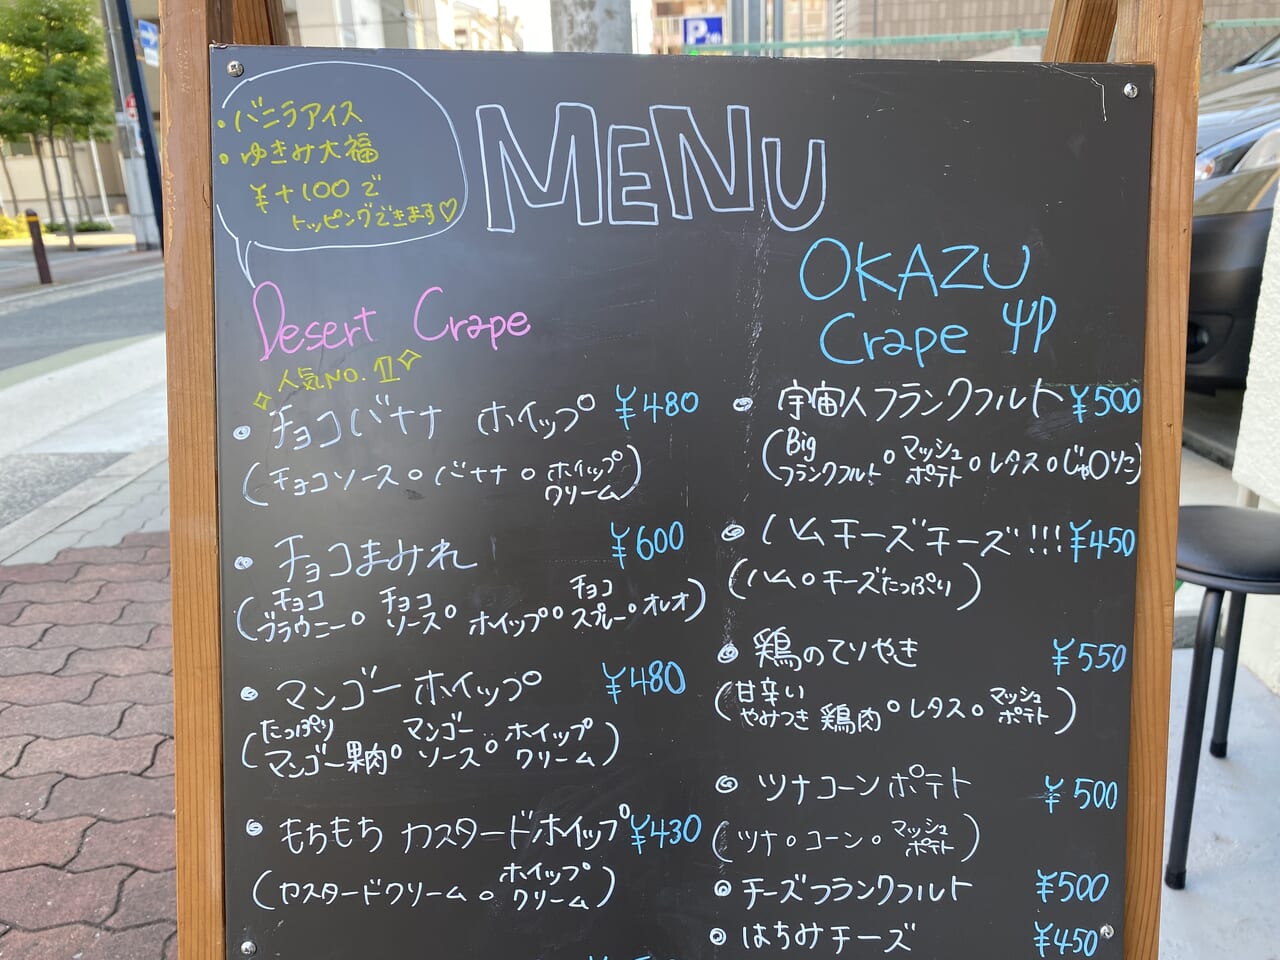 ・バニラアイス
・ゆきみ大福
¥+100で
トッピングできます♡
MENU
Desert Crape
人気NO.1
・チョコバナナ ホイップ ¥480
(チョコソース。バナナ。ホイップクリーム)
・チョコまみれ ¥600
(チョコブラウニー。チョコソース。ホイップ。チョコスプレー。オレオ)
・マンゴーホイップ ¥480
(たっぷりマンゴー果肉。マンゴーソース。ホイップクリーム)
・もちもち カスタードホイップ ¥430
(カスタードクリーム。ホイップクリーム)
OKAZU
Crape
・宇宙人フランクフルト ¥500
(Bigフランクフルト。マッシュポテト。レタス。じゃ○りこ)
・ハムチーズチーズ!!! ¥450
(ハム。チーズたっぷり)
・鶏のてりやき ¥550
(甘辛いやみつき鶏肉。レタス。マッシュポテト)
・ツナコーンポテト ¥500
(ツナ。コーン。マッシュポテト)
・チーズフランクフルト ¥500
・はちみチーズ ¥450
P